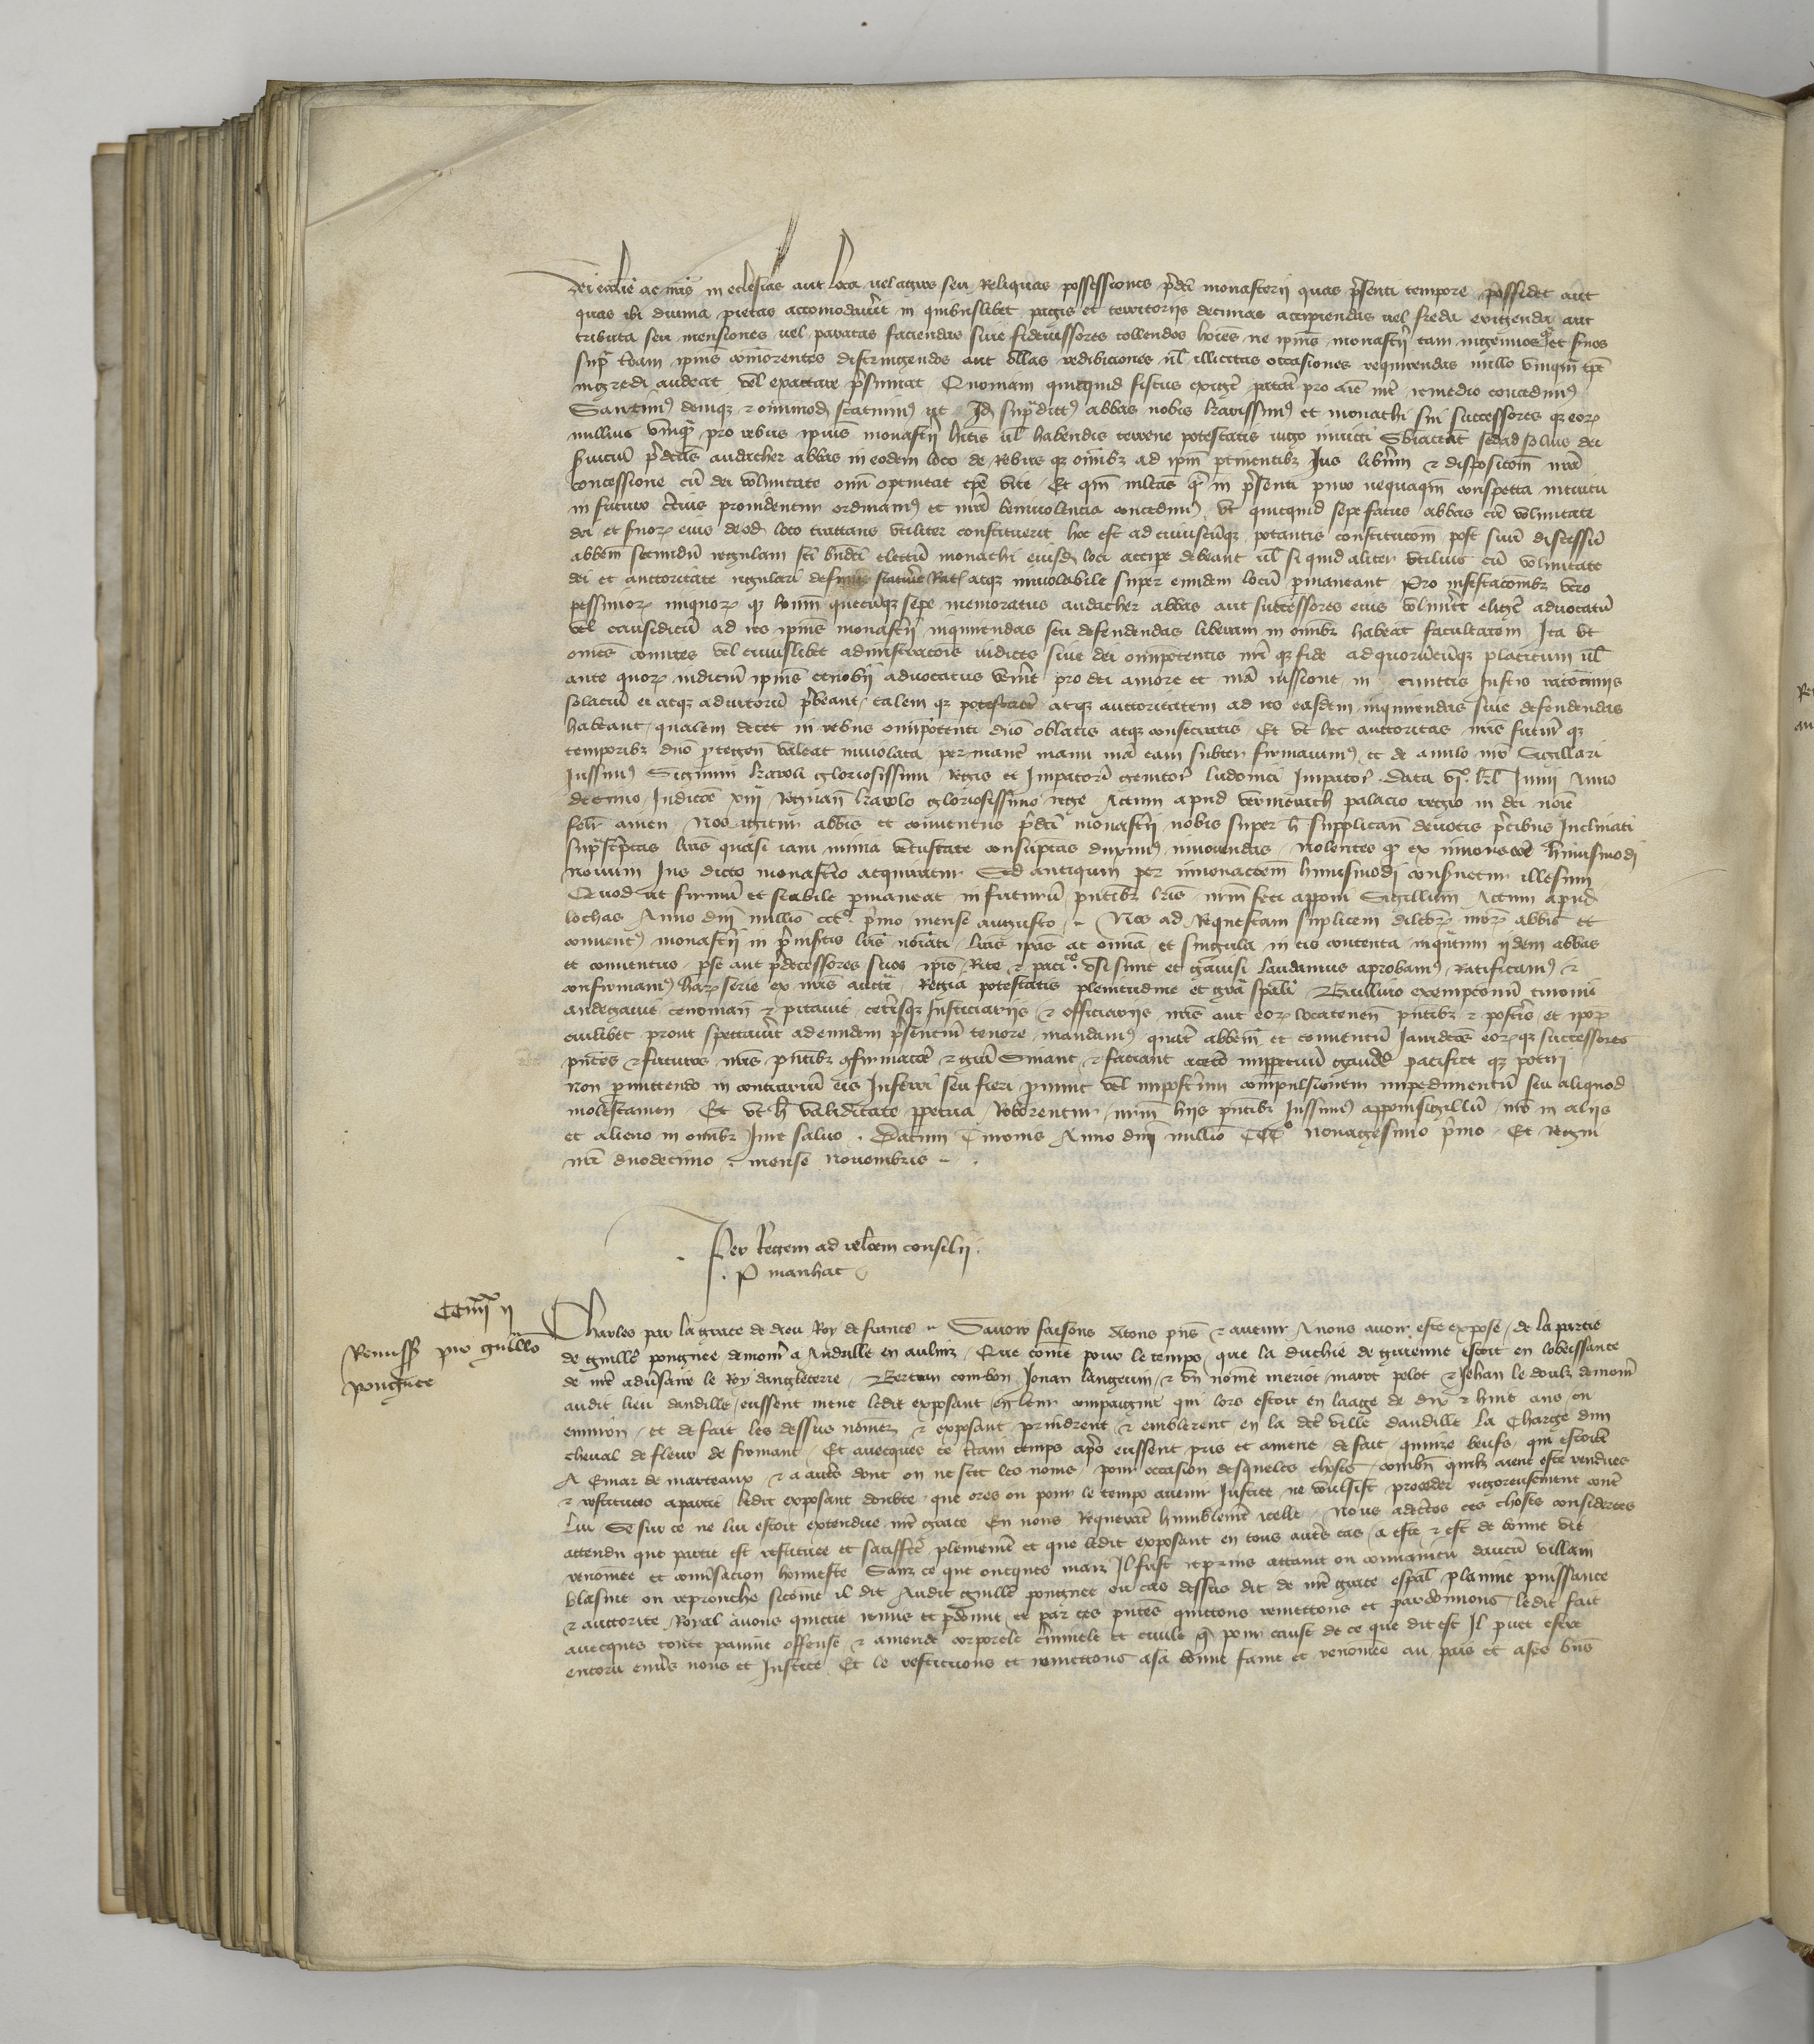 Dei ecclie ac nris in ecclesias aut loca vel agros seu Reliquas possessiones pdci monasterii quas psenti tempore possidet aut
quas ibi divina pietas accomodaverit in quibuslibet pagis et territoriis decimas accipiendas vel freda exigenda aut
tributa seu mensiones vel paratas faciendas sive fideiussores tollendos hoies ne ipius monasterii tam ingenuos et servos
supra terram ipius comorentes distringendos aut ullas redibiciones vel illicitas occasiones requirendas nullo unquam tpe
ingredi audeat vel exactare psumat Quoniam quicquid fiscus exiger pro aie nre remedio concedimus
Sanctimus denique et omimodo statuimus ut Idem supradictus abbas nobis karissimus et monachi sui successores que eorum
nullius umquam pro rebus ipius monasterii hitis vel habendis terrene potestatis iugo inviti Sbiaceat sed ad solius dei
servicium pdictus audacher abbas in eodem loco de Rebus que omnibus ad ipm ptinentibus Jus liberum et disposicionem nra
concessione cum dei voluntate omi optineat tpe vite Et qm multas que in psenti pmo nequaquam conspecta intuitu
in futuro cercius providentur ordinamus et nra benivolencia concedimus ut quicquid sepefatus abbas cum voluntate
dei et suorum eius de eodem loco tractans utiliter constituerit hoc est ad cuiuscumque potantis constitucionem post suum discessum
abbem secundum regulam sci bndicti electum monachi eiusdem loci accipe debeant vel si quid aliter utilius cum voluntate
dei et auctoritate regulari statuere Rati atque inviolabile super eundem locum pmaneant Pro infestacionibus vero
pessimorum iniquorum que hoium quecumque sepe memoratus audacher abbas aut successores eius voluerit eliger advocatum
vel causidicum ad res ipius monasterii inquirendas seu defendendas liberam in omnibus habeat facultatem Ita ut
omes comites vel cuiuslibet administracionis iudices sive dei omipotentis nri que fide ad quorumcumque placitum vel
ante quorum iudicium ipius cenobii advocatus venerit pro dei amore et nra iussione in cunctis Justis raciociniis
solacium ei atque adiutorium pbeant talem que potestatem atque auctoritatem ad res easdem inquirendas sive defendendas
habeant qualem decet in rebus omipotenti dno oblatis atque consecratis Et ut hec auctoritas nris futuris que
temporibus dno ptegen valeat inviolata permaner manu nra eam subter firmavimus et de anulo nro Sigillari
Jussimus Signum karoli gloriosissimi regis et Imperatoris genitoris ludovici Imperatoris Data VI° kl Junii Anno
decimo Indictioe XIII Regnan karolo gloriosissimo rege Actum apud vermeriach palacio regio in dei noie
felr amen Nos igitur abbis et conventus pdci monasterii nobis super h supplican devotis pcibus Inclinati
suprascptas lras quasi iam nimia vetustate consuptas duximus innovandas Nolentes que ex innovacoe huiusmodi
novum Jus dicto monasterio acquiratur Sed antiquum per innovacoem huiusmodi conservetur illesum
Quod ut firmum et stabile pmaneat in futurum pntibus lris nrm feci apponi Sigillum Actum apud
lochas Anno dni millio CC° pmo mense augusto Nos ad Requestam suplicem dilectorum nrorum abbis et
conventus monasterii in pinsertis lris noiati lras ipas ac omia et singula in eis contenta inquantum iidem abbas
et conventus pse aut pdecessores suos ipis Rite et pacifice usi sunt et gavisi laudamus aprobamus Ratificamus et
confirmamus harum serie ex nris aucte Regia potestatis plenitudine et gra spali Baillivo exempconum turonii
andegavie cenoman et pictavie ceterisque Justiciariis et officiariis nris aut eorum locatenen pntibus et posteris et ipor
cuilibet prout spectaverit ad eundem psentium tenore mandamus quat abbem et conventum Jamdictos eorumque successores
pntes et futuros nris pntibus confirmacoe et gra Sinant et faciant cetero inppetuum gaudere pacifice que potiri
Non pmittendo in contrarium eis Inferri seu fieri pnunc vel inposterum compulsionem impedimentum seu aliquod
molestamen Et ut h validitate ppetua Roborentur nrum hiis pntibus Jussimus apponi sigillum nro in aliis
et alieno in omibus Jure salvo Datum Turonis Anno dni millio CCC° nonagesimo pmo Et Regni
nri duodecimo mense Novembris
Per Regem ad relacem consilii
P manhac
CCIIIIxx II
Remissio pro guillmo
pongnee
Charles par la grace de dieu Roy de france Savoir faisons a tous pns et avenir A nous avoir este expose de la partie
de guille pongnee demor a Andille en aulnix Que come pour le temps que la duchie de guienne estoit en lobeissance
de nre adversaire le Roy dangleterre Bertran combon Jouan langevin et un nome meriot marot pelot et Jehan le doulz demor
audit lieu dandille eussent mene ledit exposant en leur compaignie qui lors estoit en laage de dix et huit ans ou
environ et de fait les dessus nomez et exposant prindrent et emblerent en la dce ville dandille la Charge dun
cheval de fleur de fromant Et avecques ce certain temps apres eussent pris et amene de fait quinze beufs qui estoient
A Emar de marteaux et a autres dont on ne scet les noms pour occasion desqueles choses combien quilz aient este rendues
et restituees a partie ledit exposant doubte que ores ou pour le temps avenir Justice ne voulsist proceder rigoreusement contre
lui Se sur ce ne lui estoit extendue nre grace En nous Requerant humblement icelle Nous adecertes ces choses considerees
attendu que partie est restituee et satisffte plenement et que ledit exposant en tous autres cas a este et est de bonne vie
renomee et conversacion honneste Sanz ce que oncques mais Il fust reprins attaint ou convaincu daucun villain
blasme ou reprouche sicome il dit Audit guille pongnee ou cas dessus dit de nre grace espal plainne puissance
et auctorite Royal avons quicte remis et pdonne et par ces pntes quittons remettons et pardonnons ledit fait
avecques toute painne offense et amende corporele criminele et civile que pour cause de ce que dit est Il puet estre
encoru envers nous et Justice Et le restituons et remettons a sa bonne fame et renomee au pais et a ses bns